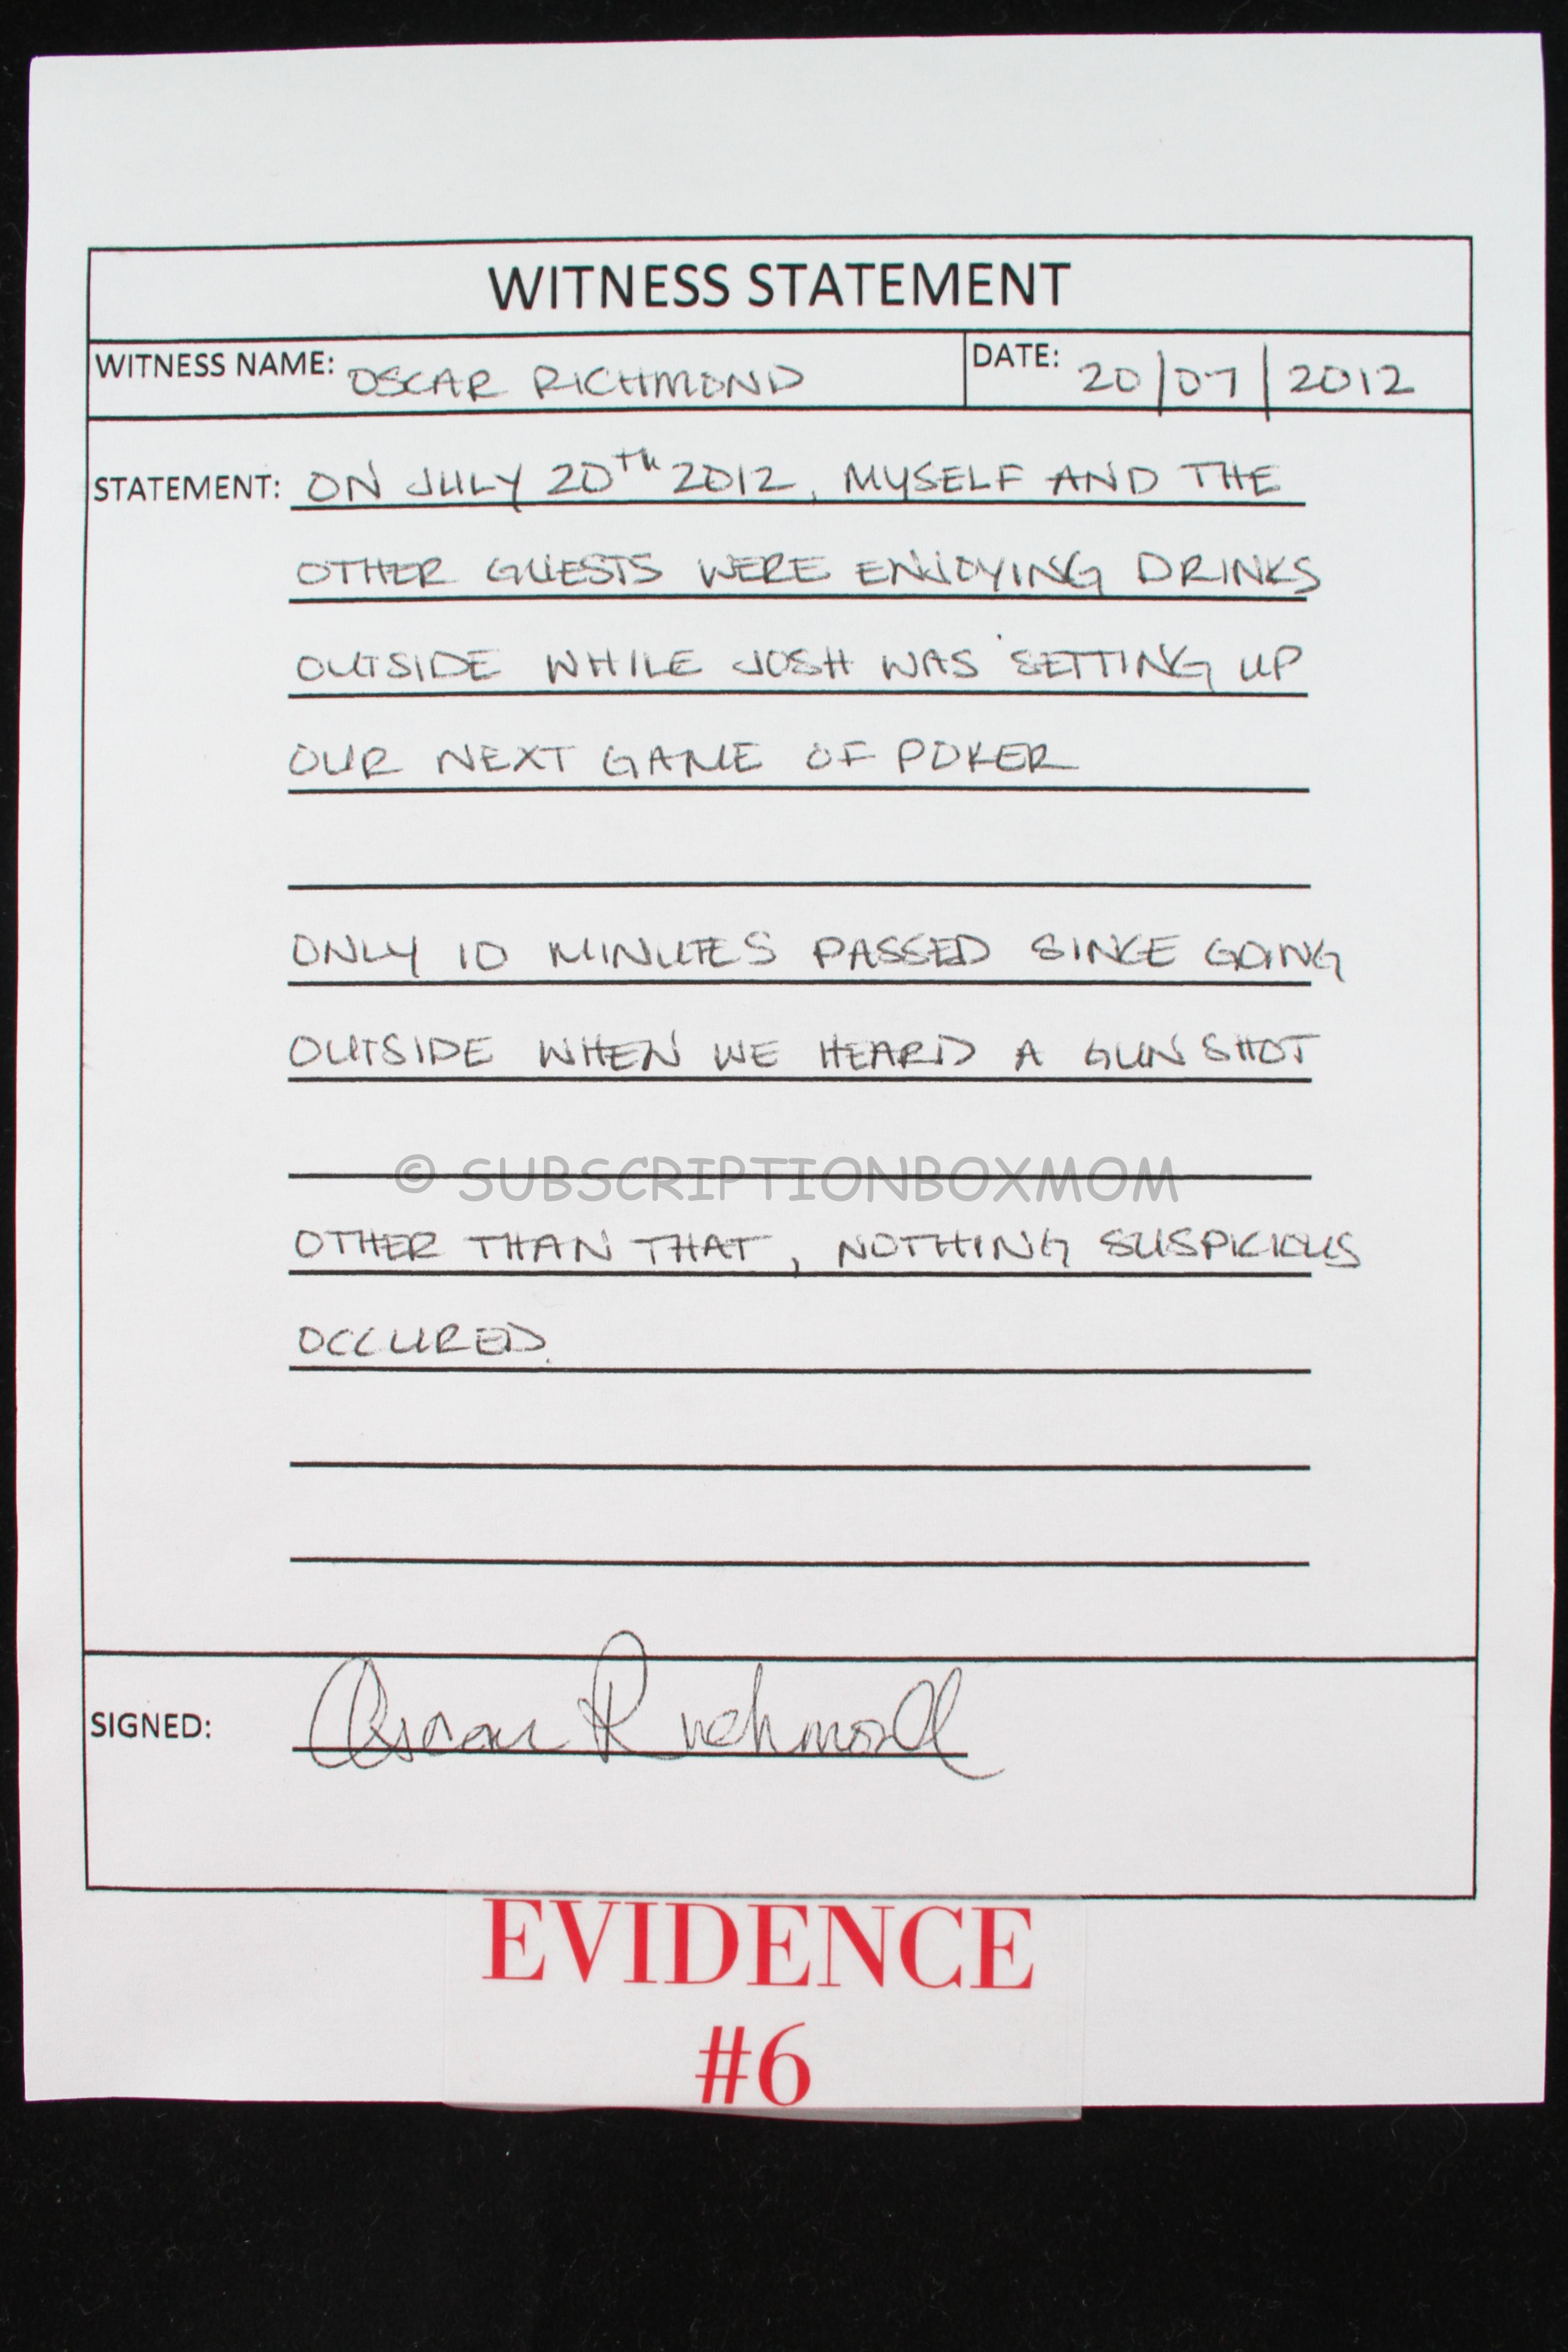 WITNESS STATEMENT
WITNESS NAME: OSCAR RICHMOND DATE: 20/07/2012
STATEMENT: ON JULY 20TH 2012, MYSELF AND THE
OTHER GUESTS WERE ENJOYING DRINKS
OUTSIDE WHILE JOSH WAS SETTING UP
OUR NEXT GAME OF POKER
ONLY 10 MINUTES PASSED SINCE GOING
OUTSIDE WHEN WE HEARD A GUN SHOT
© SUBSCRIPTIONBOXMOM
OTHER THAN THAT, NOTHING SUSPICIOUS
OCCURED.
SIGNED: Oscar Richmond
EVIDENCE
#6